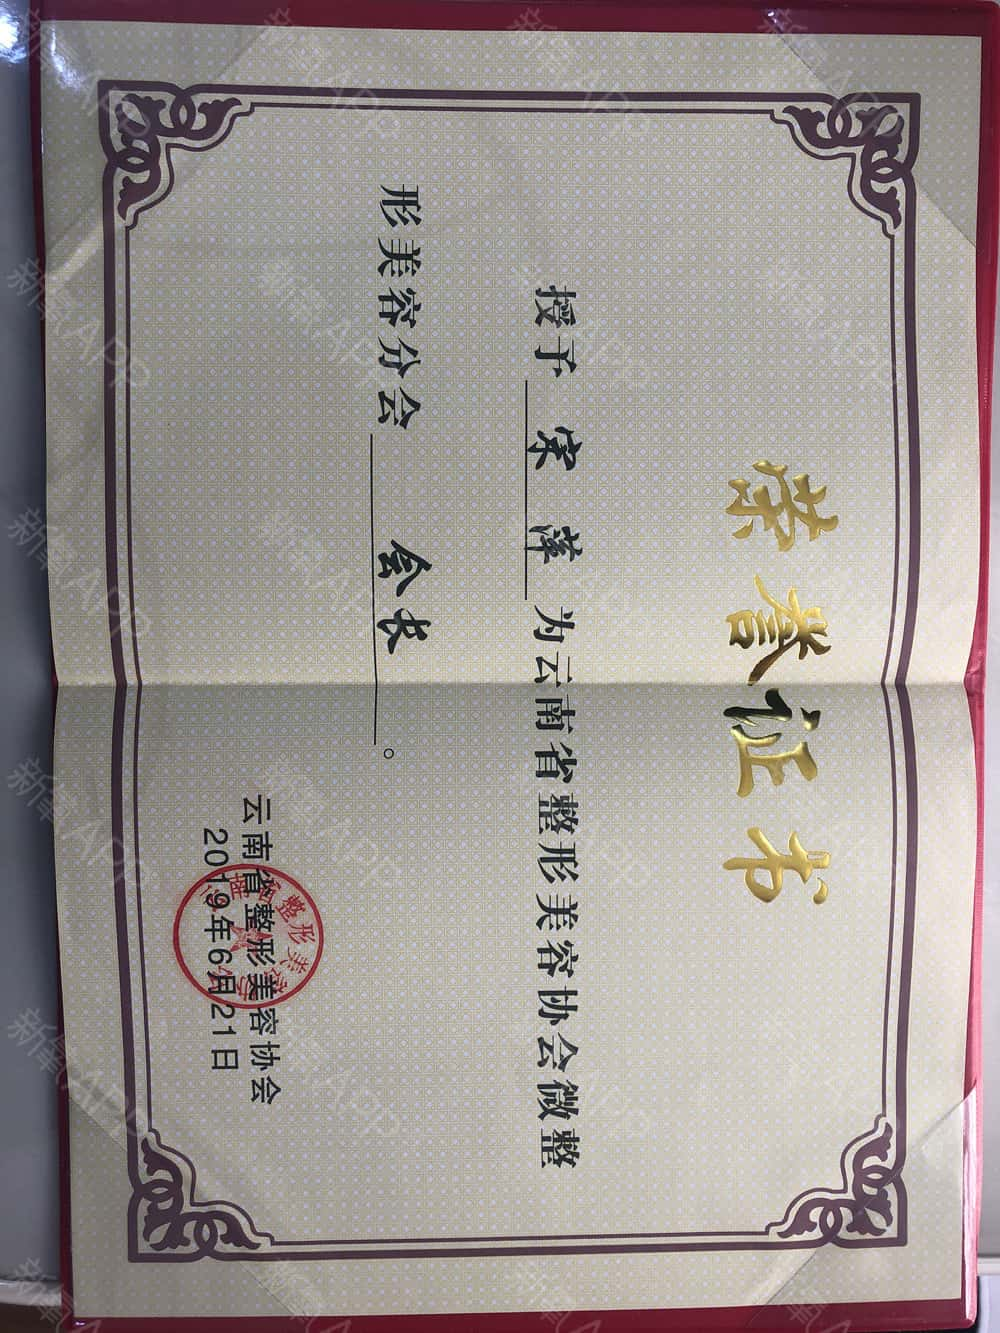 荣誉证书
授予 宋萍 为云南省整形美容协会微整
形美容分会 会长 。
云南省整形美容协会
2019年6月21日
新氧APP